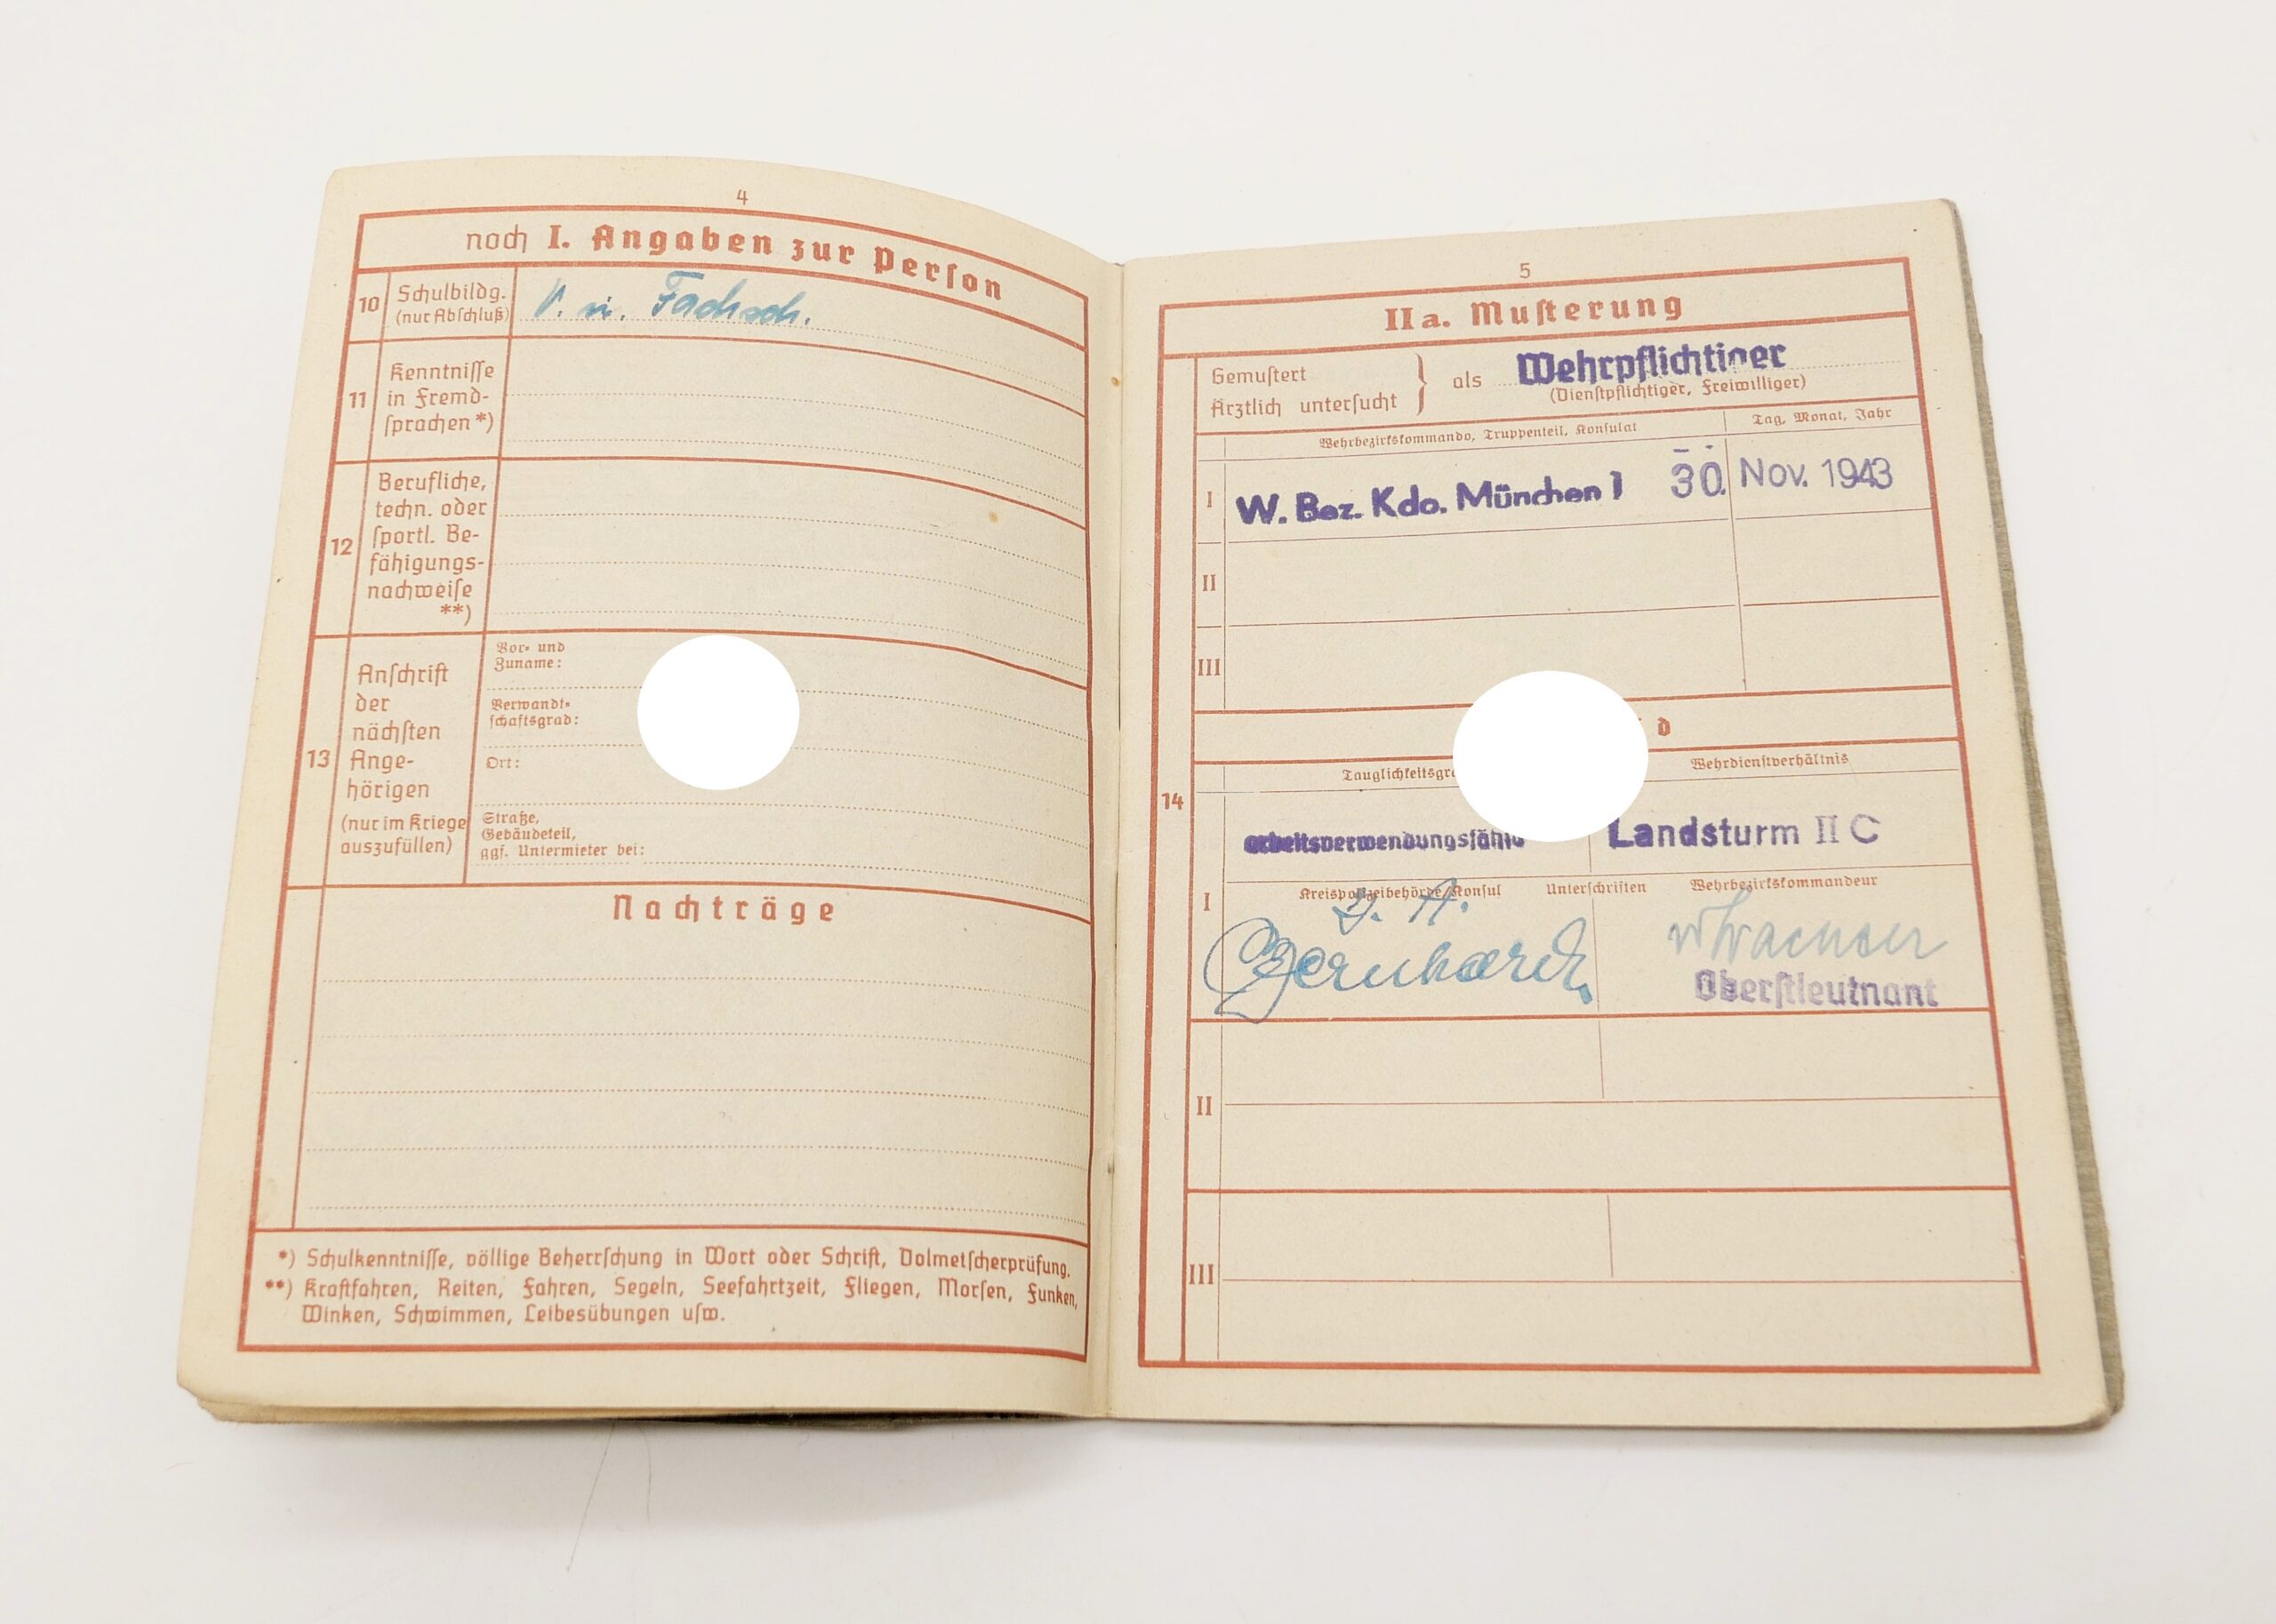 4
noch I. Angaben zur Person
10
Schulbildg.
(nur Abschluß)
V. u. Fachsch.
11
Kenntnisse
in Fremd-
sprachen *)
12
Berufliche,
techn. oder
sportl. Be-
fähigungs-
nachweise
**)
13
Anschrift
der
nächsten
Ange-
hörigen
(nur im Kriege
auszufüllen)
Vor- und
Zuname:
Verwandt-
schaftsgrad:
Ort:
Straße,
Gebäudeteil,
ggf. Untermieter bei:
Nachträge
*) Schulkenntnisse, völlige Beherrschung in Wort oder Schrift, Dolmetscherprüfung.
**) Kraftfahren, Reiten, Fahren, Segeln, Seefahrtzeit, Fliegen, Morsen, Funken,
Winken, Schwimmen, Leibesübungen usw.
5
IIa. Musterung
Gemustert
Ärztlich untersucht
} als Wehrpflichtiger
(Dienstpflichtiger, Freiwilliger)
Wehrbezirkskommando, Truppenteil, Konsulat
Tag, Monat, Jahr
I
W. Bez. Kdo. München 1
30. Nov. 1943
II
III
d
14
Wehrdienstverhältnis
arbeitsverwendungsfähig
Landsturm II C
Kreispolizeibehörde/Konsul Unterschriften Wehrbezirkskommandeur
I
Oberstleutnant
II
III